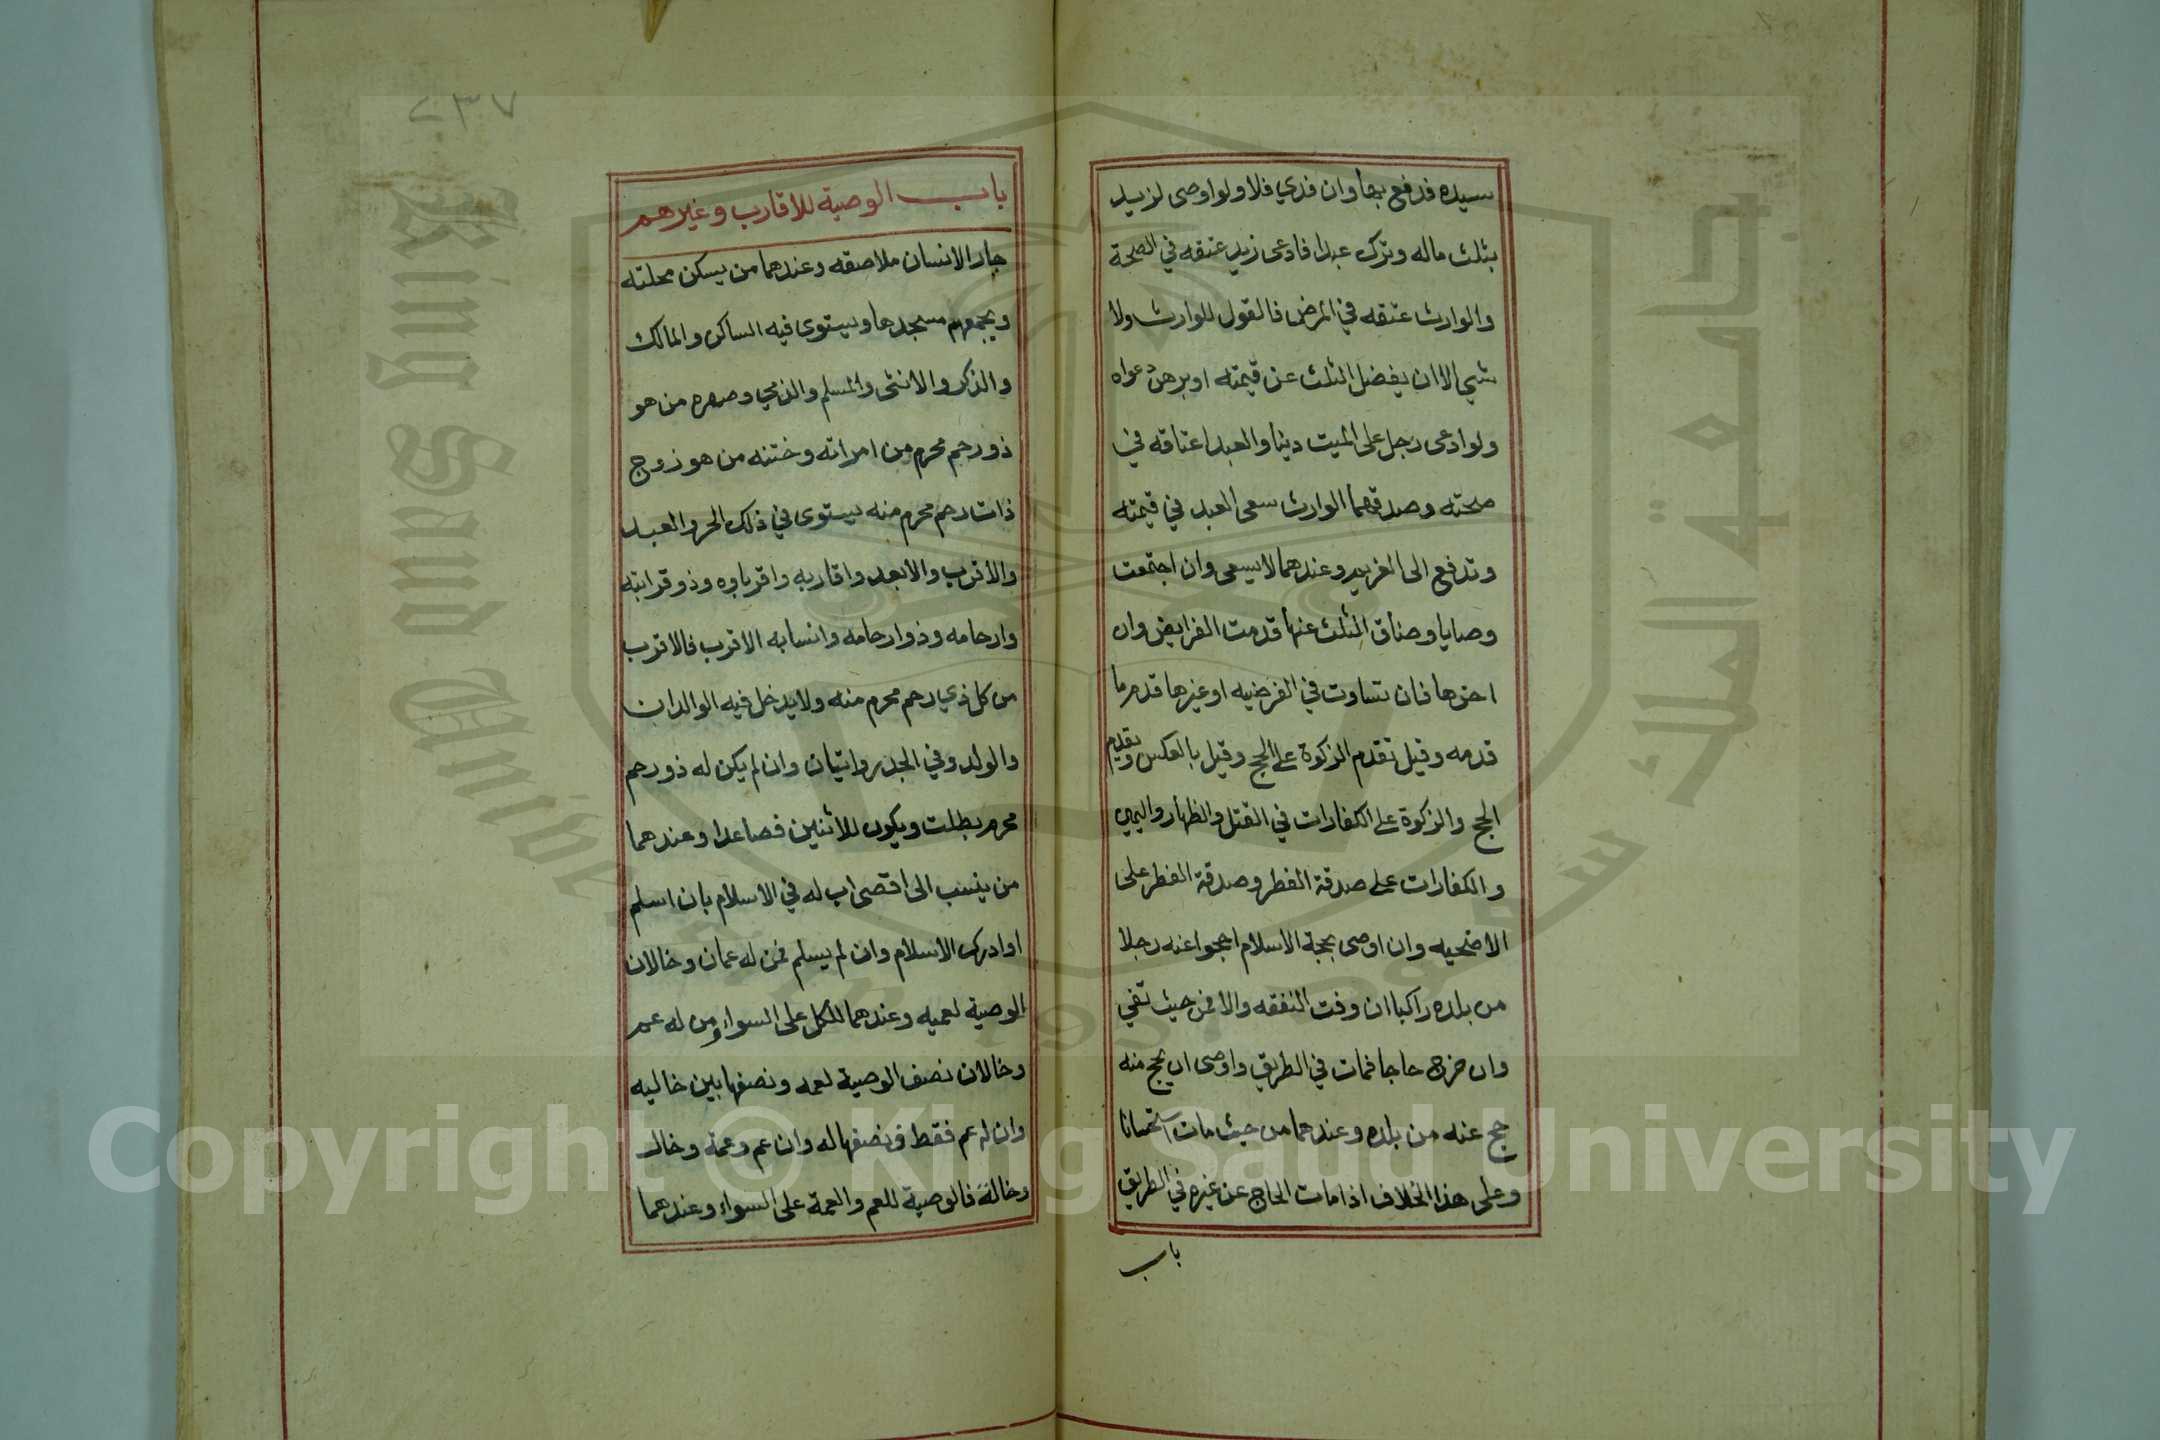 سيده فدفع بها وان فدي فلا ولو اوصى لزيد
بثلث ماله وترك عبدا فادعى زيد عتقه في الصحة
والوارث عتقه في المرض فالقول للوارث ولا
شي الا ان يفضل الثلث عن قيمته او برهن دعواه
ولو ادعى رجل على الميت دينا والعبد اعتاقه في
صحته وصدقهما الوارث سعى العبد في قيمته
وتدفع الى الغريم وعندهما لا يسعى وان اجتمعت
وصايا وضاق الثلث عنها قدمت الفرايض وان
اخرها فان تساوت في الفرضيه او غيرها قدم ما
قدمه وقيل تقدم الزكوة على الحج وقيل بالعكس ويقدم
الحج والزكوة على الكفارات في القتل والظهار واليمين
والكفارات على صدقة الفطر وصدقة الفطر على
الاضحيه وان اوصى بحجة الاسلام احجوا عنه رجلا
من بلده راكبا ان وفت النفقه والا فمن حيث تفي
وان خرج حاجا فمات في الطريق واوصى ان يحج منه
حج عنه من بلده وعندهما من حيث مات استحسانا
وعلى هذا الخلاف اذا مات الحاج عن غيره في الطريق
باب
٢٣٧
باب الوصية للاقارب وغيرهم
جار الانسان ملاصقه وعندهما من يسكن محلته
ويجمعهم مسجدها ويستوى فيه الساكن والمالك
والذكر والانثى والمسلم والذمي وصهره من هو
ذو رحم محرم من امراته وختنه من هو زوج
ذات رحم محرم منه يستوى في ذلك الحر والعبد
والاقرب والابعد واقاربه واقرباوه وذو قرابته
وارحامه وذوارحامه وانسابه الاقرب فالاقرب
من كل ذي رحم محرم منه ولا يدخل فيه الوالدان
والولد وفي الجد روايتان وان لم يكن له ذو رحم
محرم بطلت ويكون للاثنين فصاعدا وعندهما
من ينسب الى اقصى اب له في الاسلام بان اسلم
او ادرك الاسلام وان لم يسلم فمن له عمان وخالان
الوصية لعميه وعندهما للكل على السواء ومن له عم
وخالان نصف الوصية لعمه ونصفها بين خاليه
وان له عم فقط فنصفها له وان عم وعمة وخال
وخالة فالوصية للعم والعمة على السواء وعندهما
جامعة الملك سعود
King Saud University
1957
Copyright © King Saud University